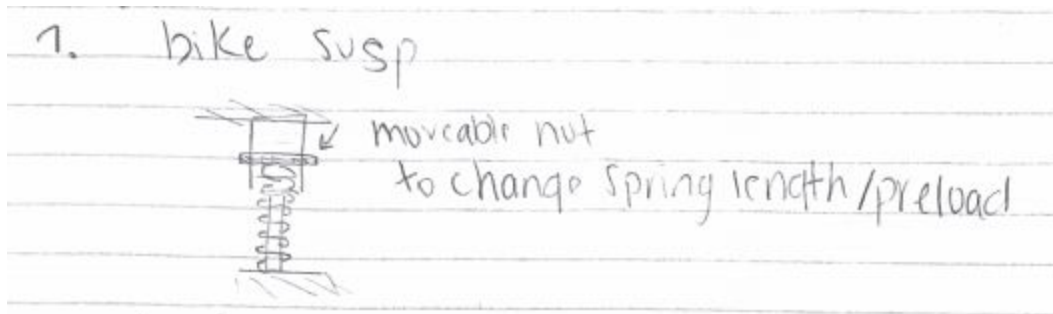 1. bike susp
moveable nut
to change spring length/preload